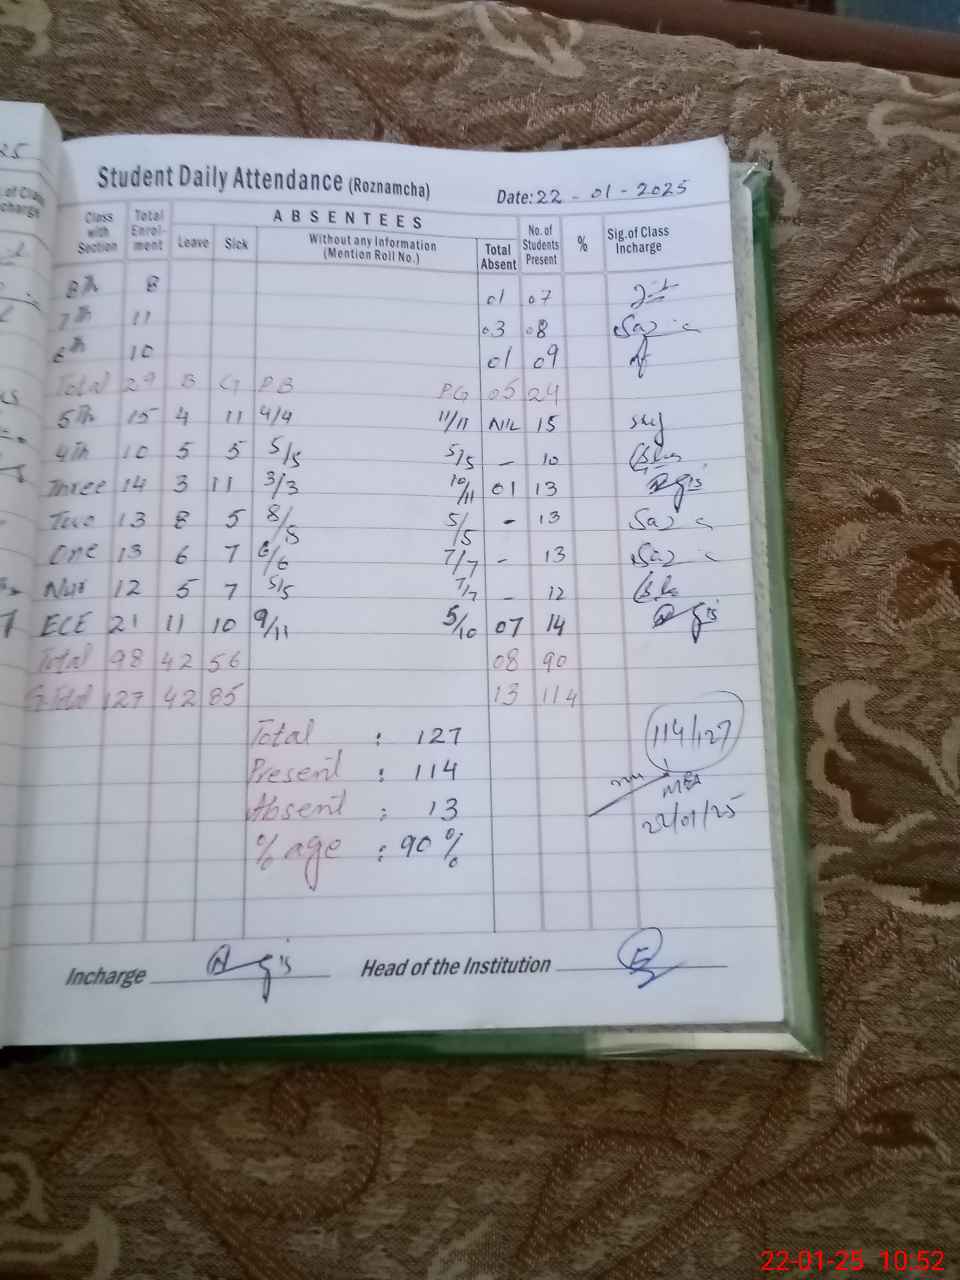 Student Daily Attendance (Roznamcha)
Date: 22 - 01 - 2025
Class with Section Total Enrol-ment ABSENTEES No. of Students Present % Sig. of Class Incharge
Leave Sick Without any Information (Mention Roll No.) Total Absent
8th 8 01 07
7th 11 03 08
6th 10 01 09
Total 29 B G P.B P.G 05 24
5th 15 4 11 4/4 11/11 NIL 15
4th 10 5 5 5/5 5/5 - 10
Three 14 3 11 3/3 10/11 01 13
Two 13 8 5 8/8 5/5 - 13
One 13 6 7 6/6 7/7 - 13
Nur 12 5 7 5/5 7/7 - 12
ECE 21 11 10 9/11 5/10 07 14
Total 98 42 56 08 90
G.Total 127 42 85 13 114
Total : 127
Present : 114
Absent : 13
% age : 90 %
114/127
MEA
22/01/25
Incharge
Head of the Institution
22-01-25 10:52